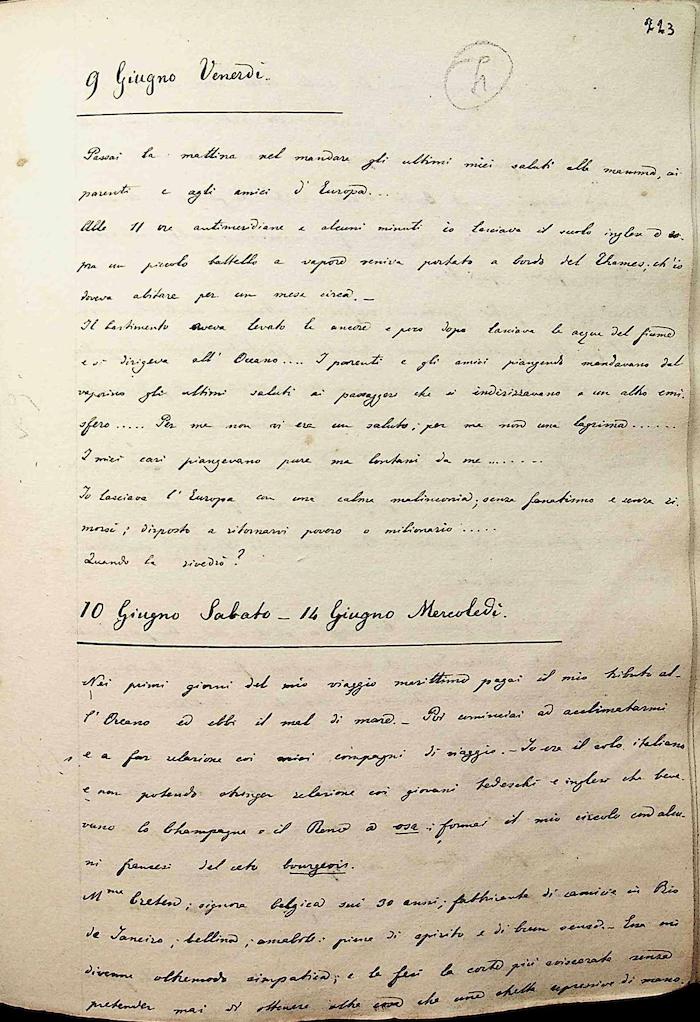 223
9 Giugno Venerdì.
Passai la mattina nel mandare gli ultimi miei saluti alla mamma, ai
parenti e agli amici d'Europa...
Alle 11 ore antimeridiane e alcuni minuti io lasciava il suolo inglese e so-
pra un piccolo battello a vapore veniva portato a bordo del Thames; ch'io
doveva abitare per un mese circa. _
Il bastimento aveva levato le ancore e poco dopo lasciava le acque del fiume
e si dirigeva all' Oceano.... I parenti e gli amici piangendo mandavano dal
vaporino gli ultimi saluti ai passaggeri che si indirizzavano a un altro emi-
sfero ..... Per me non vi era un saluto; per me non una lagrima......
I miei cari piangevano pure ma lontani da me ........
Io lasciava l'Europa con una calma malinconia; senza fanatismo e senza ri-
morsi; disposto a ritornarvi povero o milionario .....
Quando la rivedrò?
10 Giugno Sabato _ 14 Giugno Mercoledì.
Nei primi giorni del mio viaggio marittimo pagai il mio tributo al-
l'Oceano ed ebbi il mal di mare. _ Poi cominciai ad acclimatarmi
e a far relazione coi miei compagni di viaggio. _ Io era il solo italiano
e non potendo stringer relazione coi giovani tedeschi e inglesi che beve-
vano lo Champagne o il Reno a osa; formai il mio circolo con alcu-
ni francesi del ceto bourgeois.
Mme Creten; signora belgica sui 30 anni; fabbricante di camicie in Rio
de Janeiro; bellina; amabile: piena di spirito e di buon senso. _ Essa mi
divenne oltremodo simpatica; e le feci la corte più sviscerata senza
pretender mai di ottenere altro che una stretta espressiva di mano.